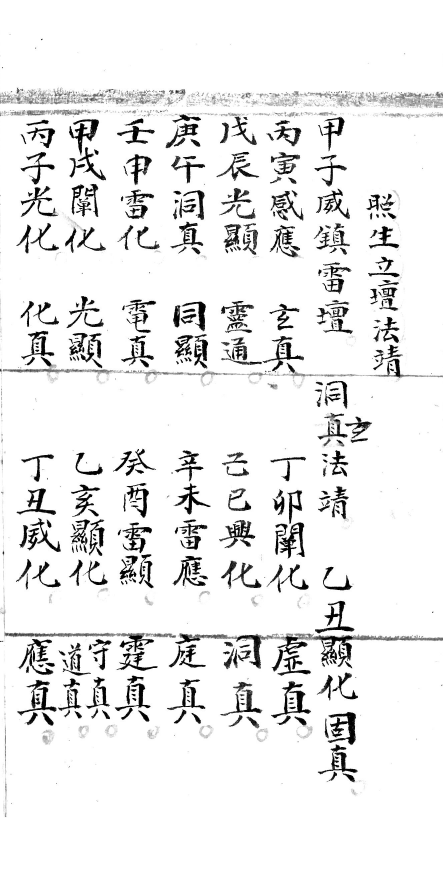 照生立壇法靖
甲子威鎮雷壇 洞真玄法靖 乙丑顯化 固真
丙寅感應 玄真 丁卯闡化 虛真
戊辰光顯 靈通 己巳興化 洞真
庚午洞真 同顯 辛未雷應 庭真
壬申雷化 電真 癸酉雷顯 霆真
甲戌闡化 光顯 乙亥顯化 守真 道真
丙子光化 化真 丁丑威化 應真